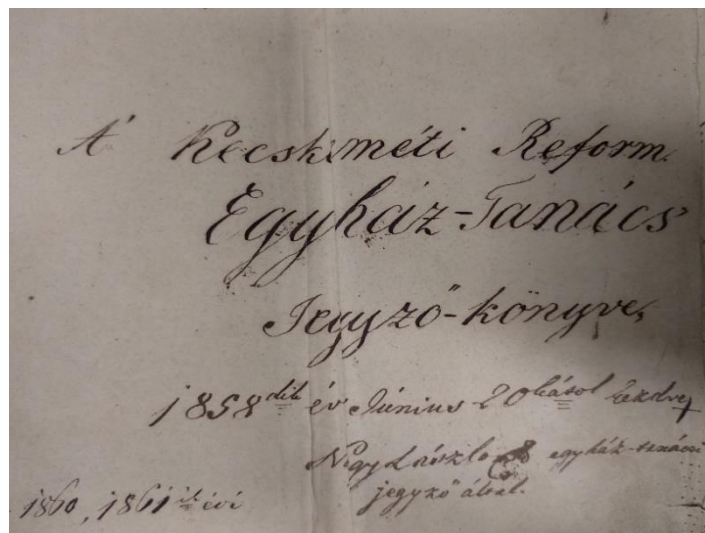 A' Kecskeméti Reform.
Egyház-Tanács
Jegyző-könyve,
1858dik év Június 20kától kezdve,
Nagy László egyház-tanácsi
jegyző által.
1860, 1861ik évi